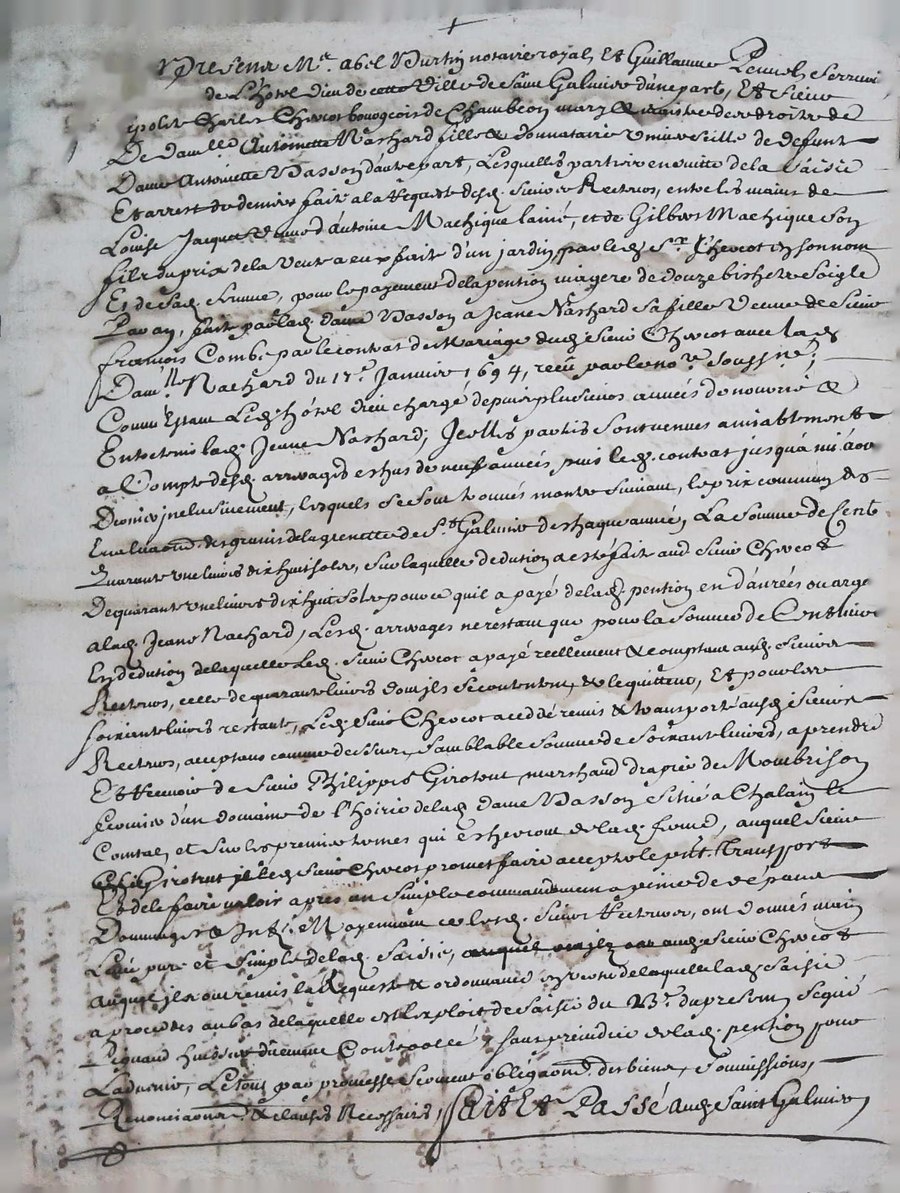 Presens Me. abel Burtin notaire royal et Guillaume
de L'hôtel dieu de cette ville de Saint Galmier d'une part, et Sieur
ipolite Charles Chovot bourgeois de Chambéon, mary & maistre des droits de
De damlle. Antoinette Nachard fille & donnataire universelle de defunte
Dame Antoinette Basson d'autre part, Lesquelles parties en suitte de la Saisie
Et arrest de deniers fait a la Requeste desd. Sieurs Recteurs, entre les mains de
Louise Jacquet veuve d'Antoine Machique lainé, et de Gilbert Machique Son
fils du prix de la vente a eux faite d'un jardin par led. Sr. Chovot en son nom
Et de Sad. femme, pour le payement de la pention viagere de douze bichets Seigle
Par an, faite par lad. dame Basson a Jeane Nachard Sa fille Veuve de Sieur
françois Combe par le contrat de Mariage dud. Sieur Chovot avec lad.
Damlle Nachard du 17e. Janvier 1694, receu par le nore. Soussigné,
Comme Estant Led. hôtel dieu chargé depuis plusieurs années de nourrir &
Entretenir lad. Jeane Nachard; Icelles parties Sont venues amiablement
a Compte desd. arrerages eschus de neuf années, puis led. contrat jusqu'a mi aou
Dernier inclusivement, lesquels Se Sont trouvés monter Suivant, le prix commun des
Evaluaons. des grains de la grenette de St. Galmier de chaque année, La Somme de Cent
Quarante une livres dix huit Sols, Sur laquelle dedution a esté faite aud. Sieur Chovot
De quarante une livres dix huit Sols pour ce qu'il a payé de lad. pention en danrées ou arge
a lad. Jeane Nachard, Lesd. arrerages ne restant que pour la Somme de Cent livres
En dedution de laquelle Led. Sieur Chovot a payé réellement & comptant ausd. Sieurs
Recteurs, celle de quarante livres dont ils Se contentent, & le quittent, Et pour les
Soixante livres restante, Led. Sieur Chovot a cedé remis & transporté ausd. Sieurs
Recteurs, aceptans comme dessus, Samblable Somme de Soixante livres, a prendre
Et Recevoir de Sieur Philippes Girotent marchand drapier de Montbrison
fermier d'un domaine de l'hoirie de lad. dame Basson Situé a Chalain le
Comtal, et Sur les premiers termes qui escherront de lad. ferme, auquel Sieur
Girotent led. Sieur Chovot promet faire accepter le pnt. Transport
Et de le faire valoir apres un Simple commandement a peine de despans
Dommages & Intz. Moyennant ce lesd. Sieurs Recteurs, ont donnés main
Levée pure et Simple de lad. Saisie, aud. Sieur Chovot
auquel ils ont remis la Requeste & ordonnance en vertu de laquelle lad. Saisie
a procedés au bas de laquelle est l'exploit de Saisie du 23e. du presant Signé
huissier duement Controollé, Sans prejudice de lad. pention pour
Ladvenir, Le tout par promesse Serment obligaons. des biens, Soumissions,
Renonciaons. & clauses Necessaires, fait Et Passé aud. Saint Galmier